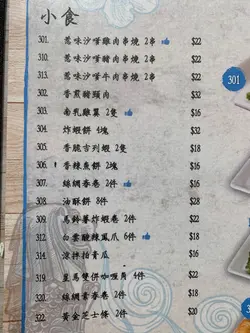 小食
301. 惹味沙嗲雞肉串燒 2串 $22
310. 惹味沙嗲豬肉串燒 2串 $22
313. 惹味沙嗲牛肉串燒 2串 $22
302. 香煎豬頸肉 $32
303. 南乳雞翼 2隻 $16
304. 炸蝦餅 4塊 $32
305. 香脆吉列蝦 2隻 $18
306. 香辣魚餅 2塊 $16
307. 絲網春卷 2件 $16
308. 油酥餅 8件 $28
309. 馬鈴薯炸蝦卷 2件 $22
312. 白雲酸辣鳳爪 6件 $32
314. 涼拌拍青瓜 $16
319. 星馬雙併咖喱角 4件 $18
320. 絲網素春卷 2件 $18
322. 黃金芝士條 2件 $20
301